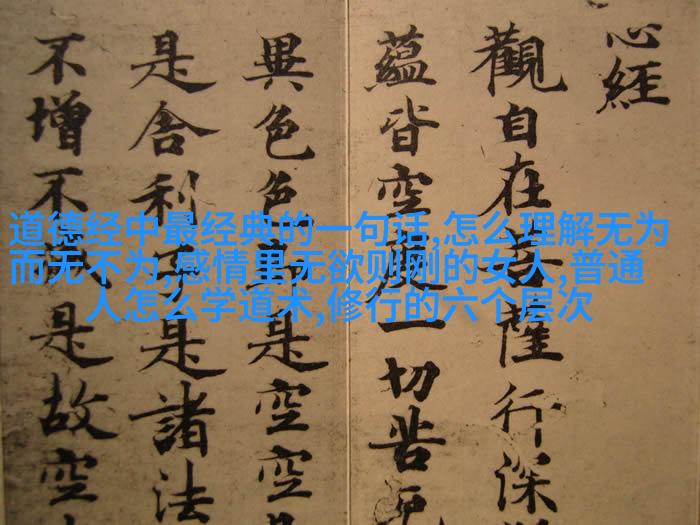 心經
觀自在菩薩行深
蘊皆空度一切苦厄
異色色即是空空
是舍利子是諸法
不增不減是故空
道德经中最经典的一句话,怎么理解无为
而无不为,感情里无欲则刚的女人,普通
人怎么学道术,修行的六个层次